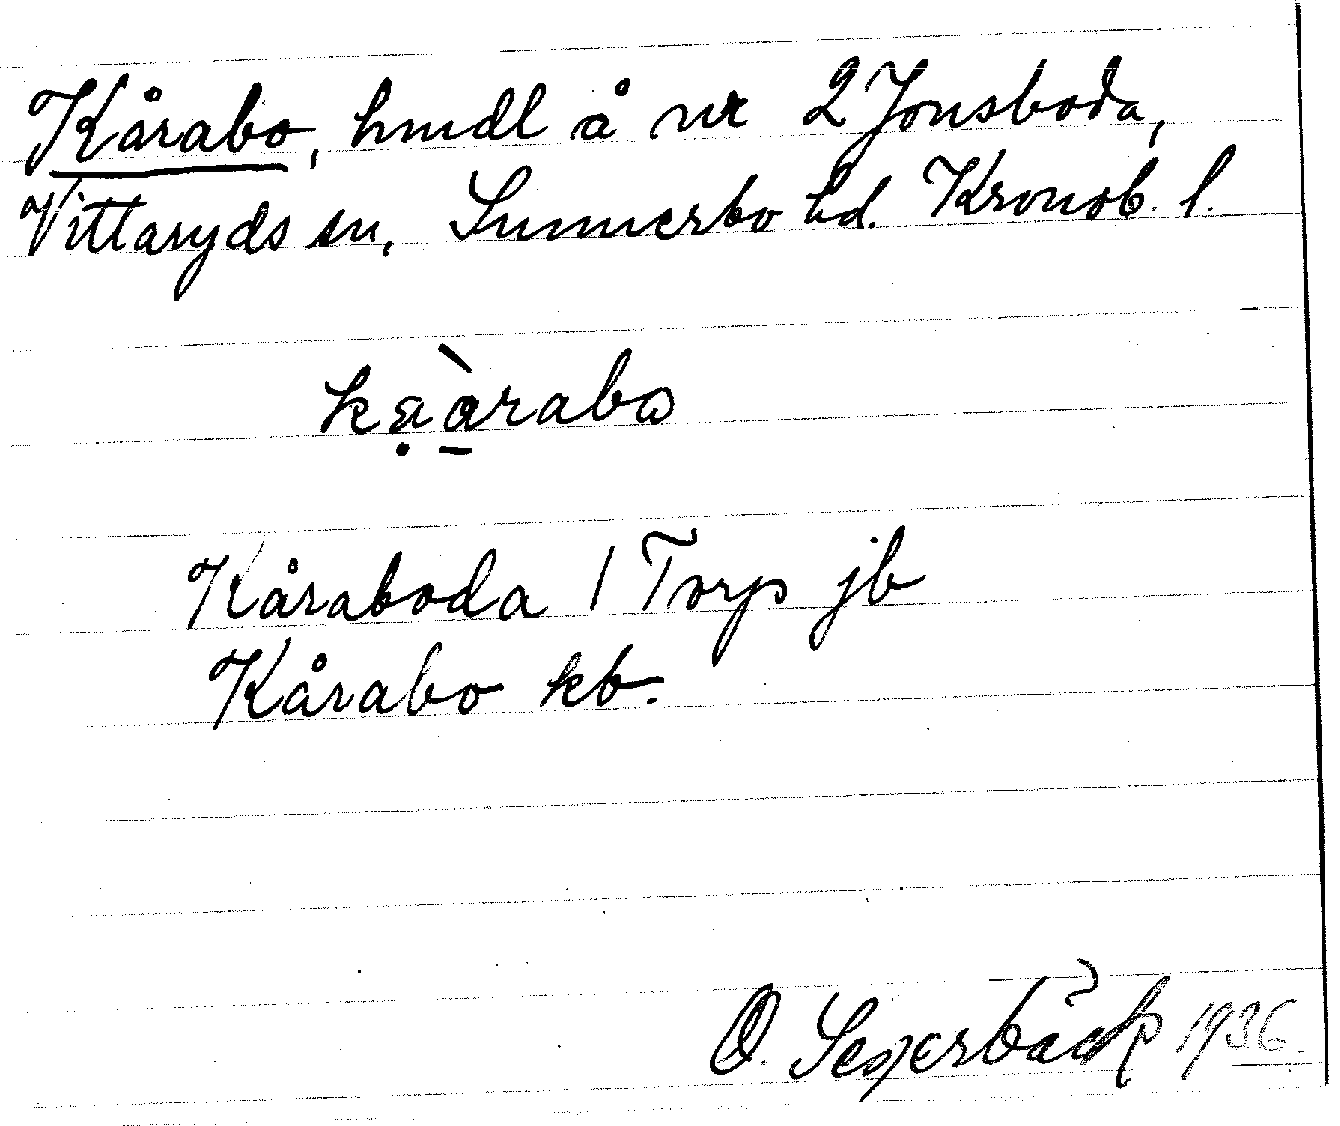 Kårabo, hmdl å nr 2 Jonsboda,
Vittaryds sn, Sunnerbo hd. Kronob. l.
kạà̱rabo
Kåraboda 1 Torp jb
Kårabo kb.
O. Segerbäck 1936